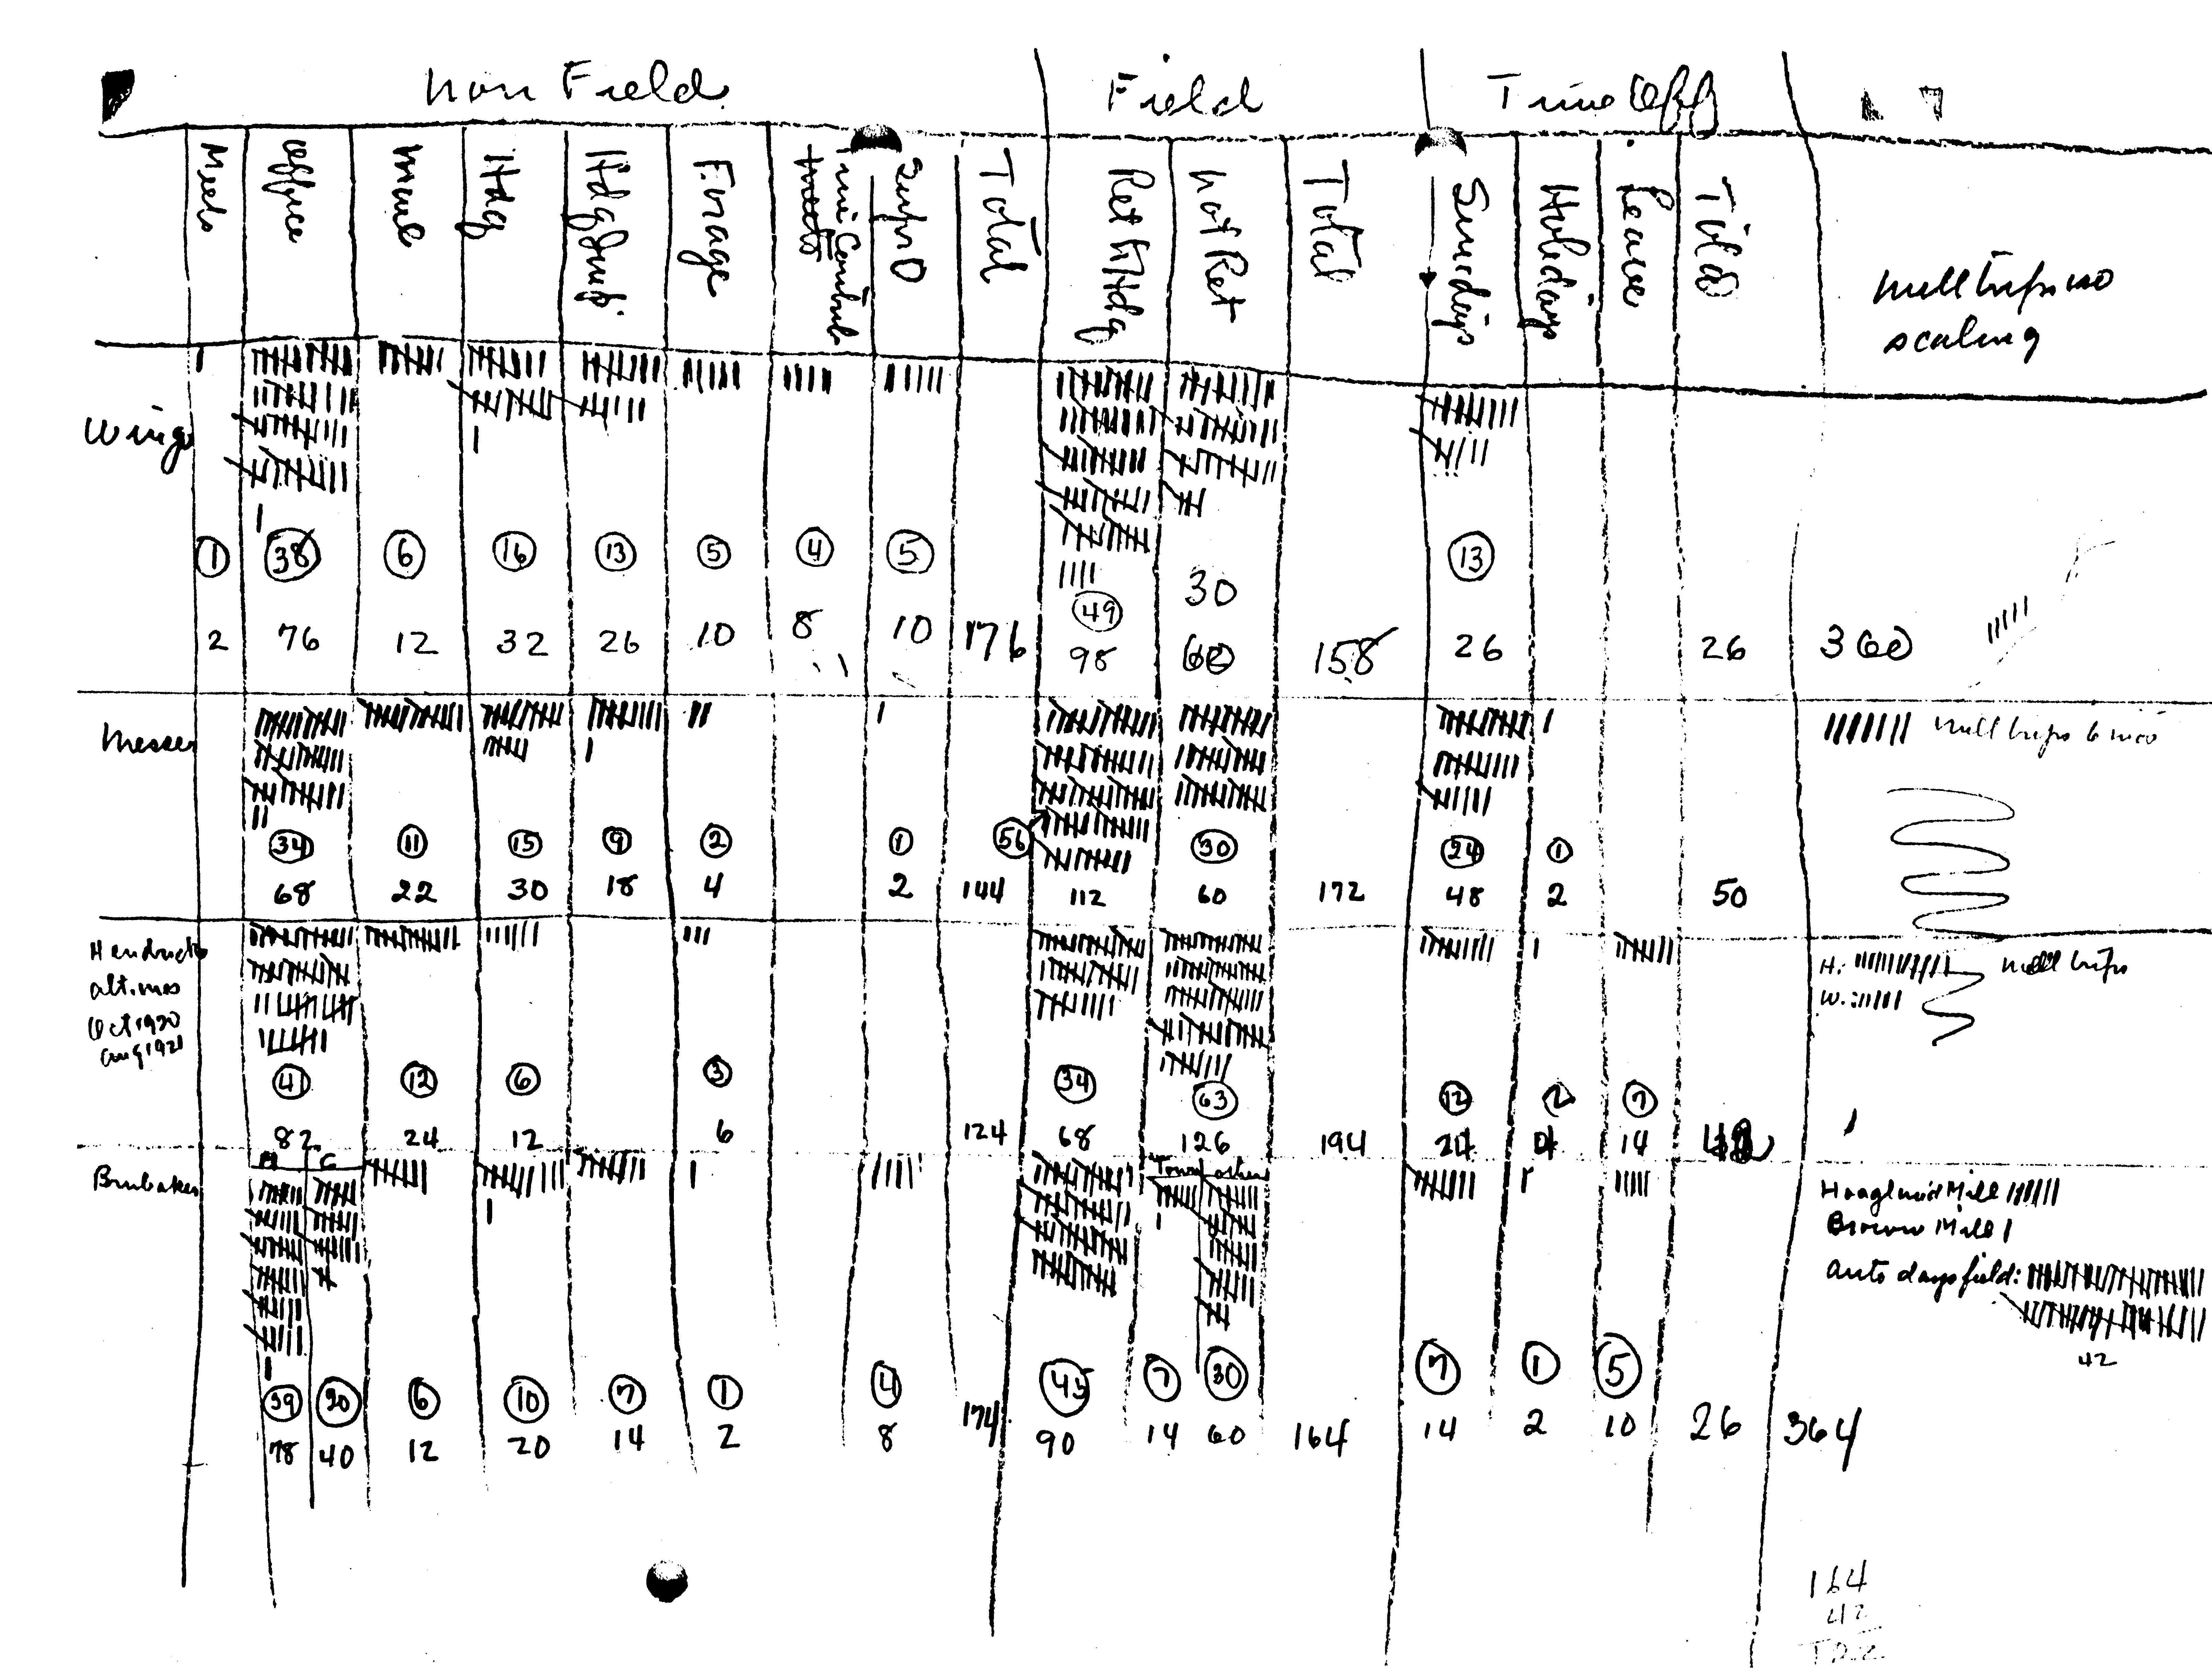 Non Field Field Time Off
Office
Hdq
Forage
Total
Ret to Hdq
Not Ret
Total
Sundays
Holidays
Leave
Total
Mill trips no
scaling
Wing
1 38 6 16 13 5 4 5 49 30 13
2 76 12 32 26 10 8 10 176 98 60 158 26 26 360
Messer
Mill trips 6 mos
34 11 15 9 2 1 56 30 24 1
68 22 30 18 4 2 144 112 60 172 48 2 50
alt. mos
Oct 1920
Aug 1921
H. Mill trips
W.
41 12 6 3 34 63 12 2 7
82 24 12 6 124 68 126 194 24 4 14
Brubaker
H G
Town other
Hoagland Mill
Brown Mill
Auto days field:
42
39 20 6 10 7 1 4 45 7 30 7 1 5
78 40 12 20 14 2 8 174 90 14 60 164 14 2 10 26 364
164
42
122